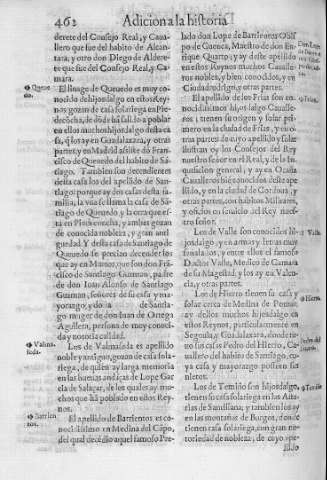 462 Adicion a la historia
derete del Consejo Real, y Caua-
llero que fue del habito de Alcan-
tara, y otro don Diego de Aldere-
te que fue del Consejo Real, y Ca-
mara.
El linage de Queuedo es muy co-
nocido de hijosdalgo en estos Rey-
nos
grandeça, de dõde há salido a poblar
en ellos muchos hijosdalgo desta ca
sa, y los ay en Guadalaxara, y otras
partes y en Madrid assiste dõ Fran-
cisco de Queuedo del habito de Sã-
tiago. Tambien son decendientes
desta casa los del apellido de San-
tiago: porque ay dos casas desta fa-
milia, la vna se llama la casa de Sã-
tiago de Queuedo, y la otra que es-
tà en
de conocida nobleza, y gran anti-
guedad. Y desta casa de Santiago de
Queuedo se precian decender los
que ay en
cisco de Santiago Guzman, padre
de don Iuan Alonso de Santiago
Guzman, señores de su casa y ma-
yorazgo; y do
go muger de don Iuan de Ortega
Aguilera, persona de muy conoci-
da y notoria calidad.
Los de Valmaseda es apellido
noble y antiguo, gozan de casa sola-
riega, de quien ay larga memoria
en las
cia de Salazar, de los quales ay mu-
chos que hã poblado en estos Rey-
nos.
El apellido de Barrientos es co-
nocidissimo en Medina del Cãpo,
del qual decẽdio aquel famoso Pre-
lado don Lope de Barrientos Obis-
po de Cuenca, Maestro de don En-
rique Quarto, y deste apellido ay
en estos Reynos muy
ros nobles, y bien conocidos, y en
Ciudadrodrigo, y otras partes.
El apellido de los Frias son co-
nocidissimos hijosdalgo Caualle-
ros; tienen su origen y solar pri-
mero en la ciudad de Frias, y en o-
tras partes de este apellido y solar
ilustres en los Consejos del Rey
nuestro señor en el Real, y de la In-
quisicion general; y ay en Ocaña
Caualleros bien conocidos deste ape-
llido, y en la ciudad de Cordoua, y
otras partes, con habitos Militares,
y oficios en seruicio del Rey nues-
tro señor.
Los de Valle son conocidos hi-
josdalgo, y en armas y letras muy
antiguos, y entre ellos el famoso
Doctor Valle, Medico de Camara
de su Magestad, y los ay en Valen-
cia, y otras partes.
Los de Hierro tienen su casa y
solar cerca de Medina de Pomar,
ay dellos muchos hijosdalgo en
estos Reynos, particularmente en
Segouia, y Guadalaxara, donde tie-
ne su casa Pedro del Hierro, Ca-
uallero del habito de Santiago, cu-
ya casa y mayorazgo posseen sus
nietos.
Los de Temiño son hijosdalgo,
tienen su casa solariega en las Astu-
rias de Santillana; y tambien los ay
en las montañas de Burgos, donde
tienen su casa solariega, con gran no-
toriedad de nobleza, de cuyo ape-
llido